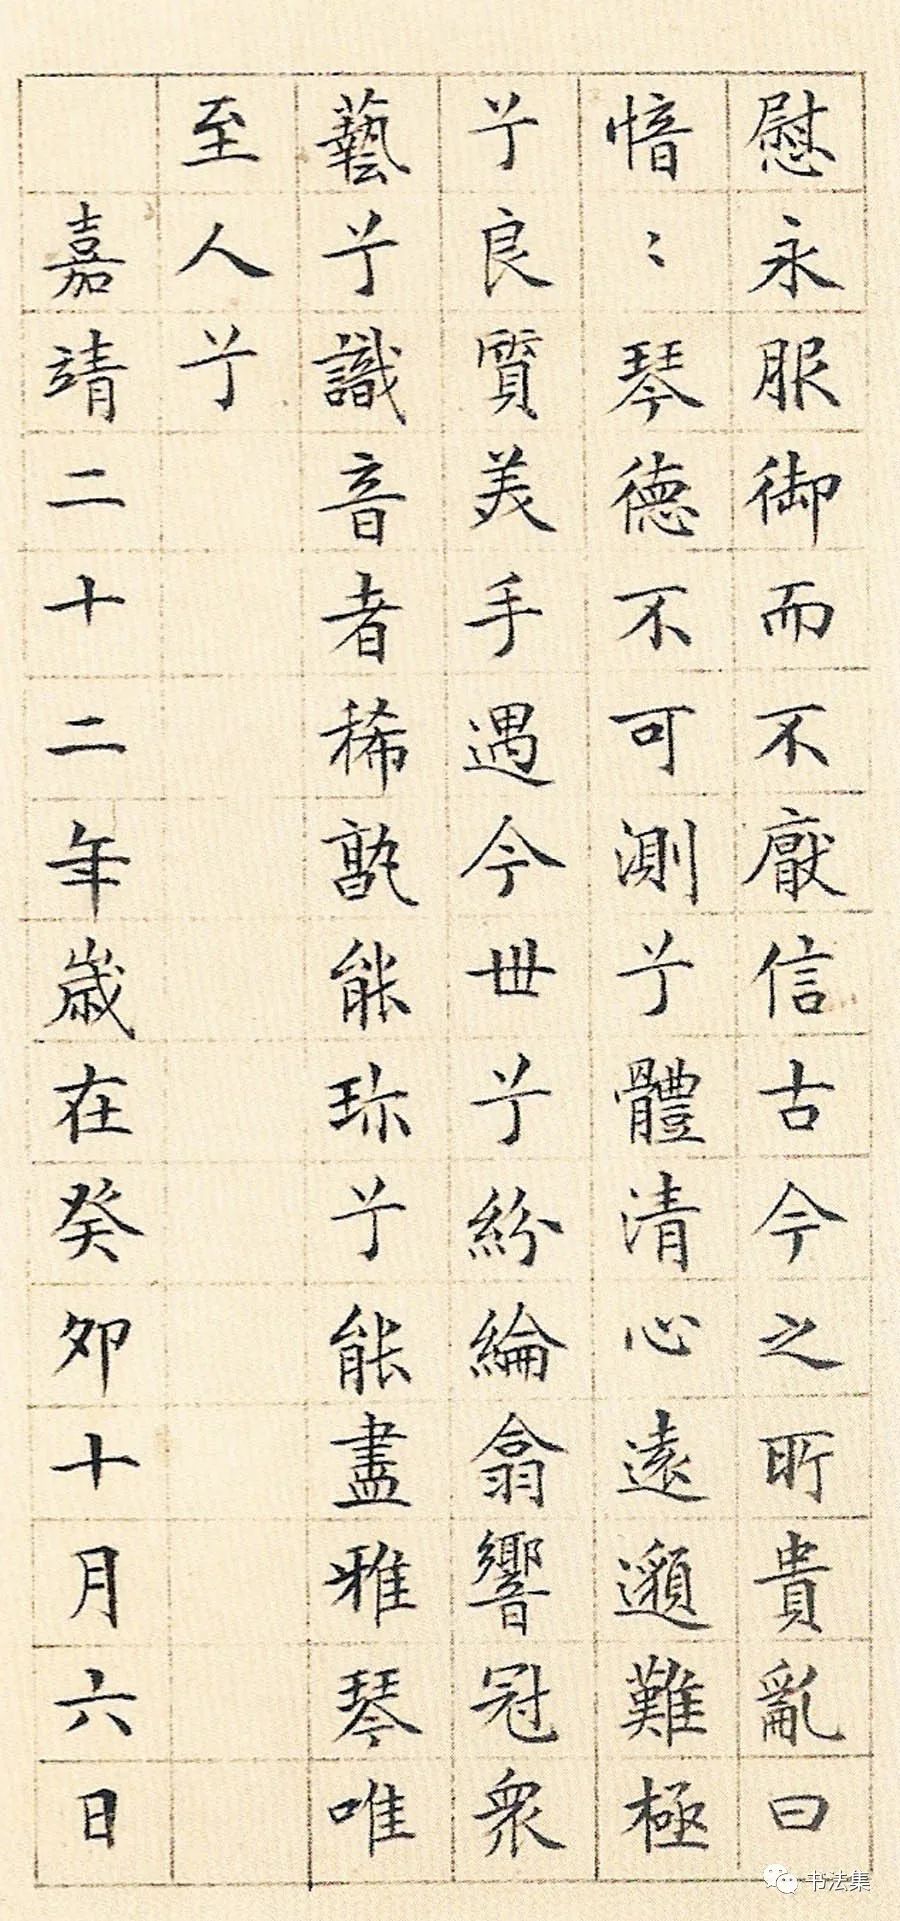 慰永服御而不厭信古今之所貴亂曰
愔〻琴德不可測兮體清心遠邈難極
兮良質美手遇今世兮紛綸翕響冠衆
藝兮識音者稀孰能珎兮能盡雅琴唯
至人兮
嘉靖二十二年歲在癸卯十月六日
书法集